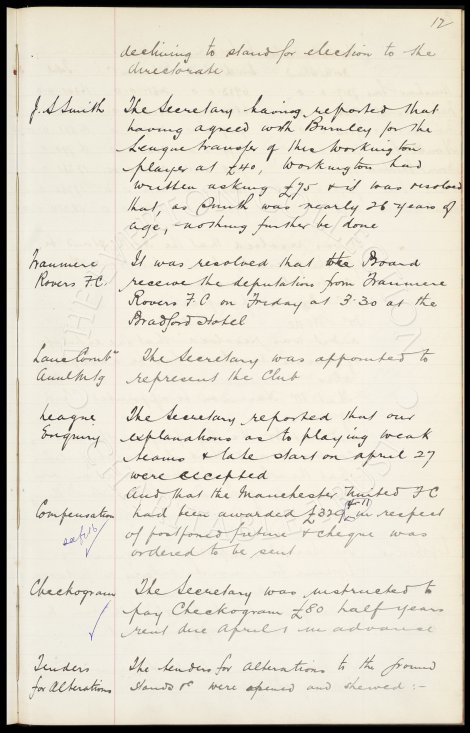 12
declining to stand for election to the
directorate
J. S Smith The Secretary having reported that
having agreed with Burnley for the
League transfer of this Workington
player at £40, Workington had
written asking £75 & it was resolved
that, as Smith was nearly 26 years of
age, nothing further be done
Tranmere It was resolved that the Board
Rovers F.C. receive the deputation from Tranmere
Rovers F.C on Friday at 3.30 at the
Bradford Hotel
Lancs Combn The Secretary was appointed to
Annl Mtg represent the Club
League The Secretary reported that our
Enquiry explanations as to playing weak
teams & late start on april 27
were accepted
And that the Manchester United FC
Compensation had been awarded £329 in respect
of postponed fixture & cheque was
ordered to be sent
Checkogram The Secretary was instructed to
pay Checkogram £80 half years
rent due April 1 in advance
Tenders The tenders for alterations to the ground
for Alterations Stands &c were opened and shewed :-